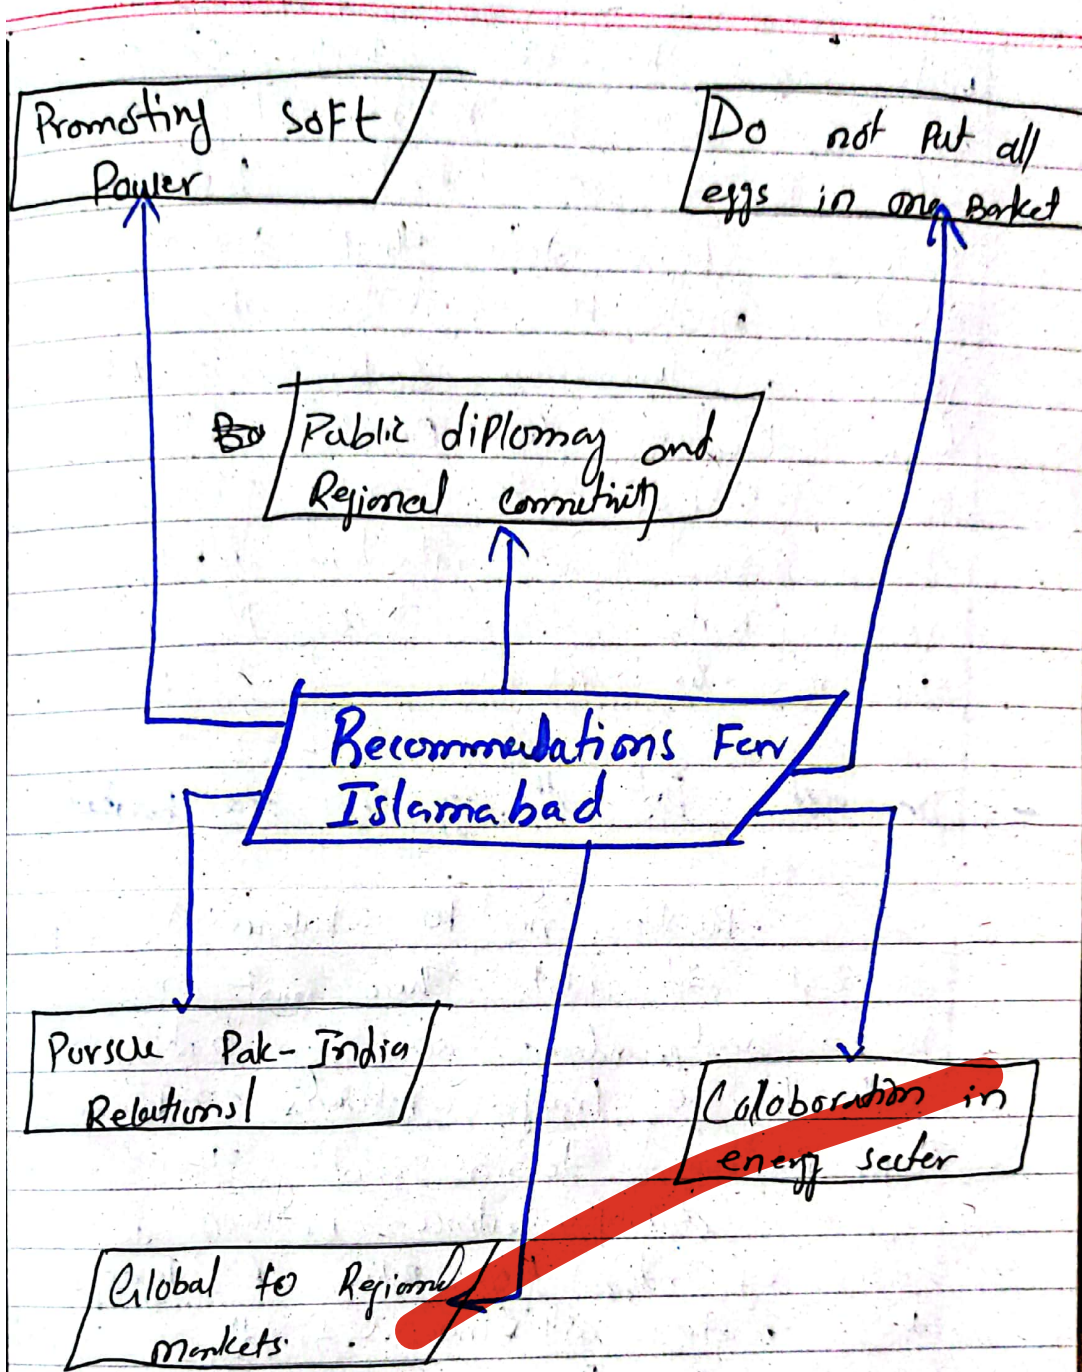 Promoting Soft
Power
Do not Put all
eggs in one Basket
Public diplomacy and
Regional connectivity
Recommendations For
Islamabad
Pursue Pak-India
Relations
Colaboration in
energy sector
Global to Regional
Markets